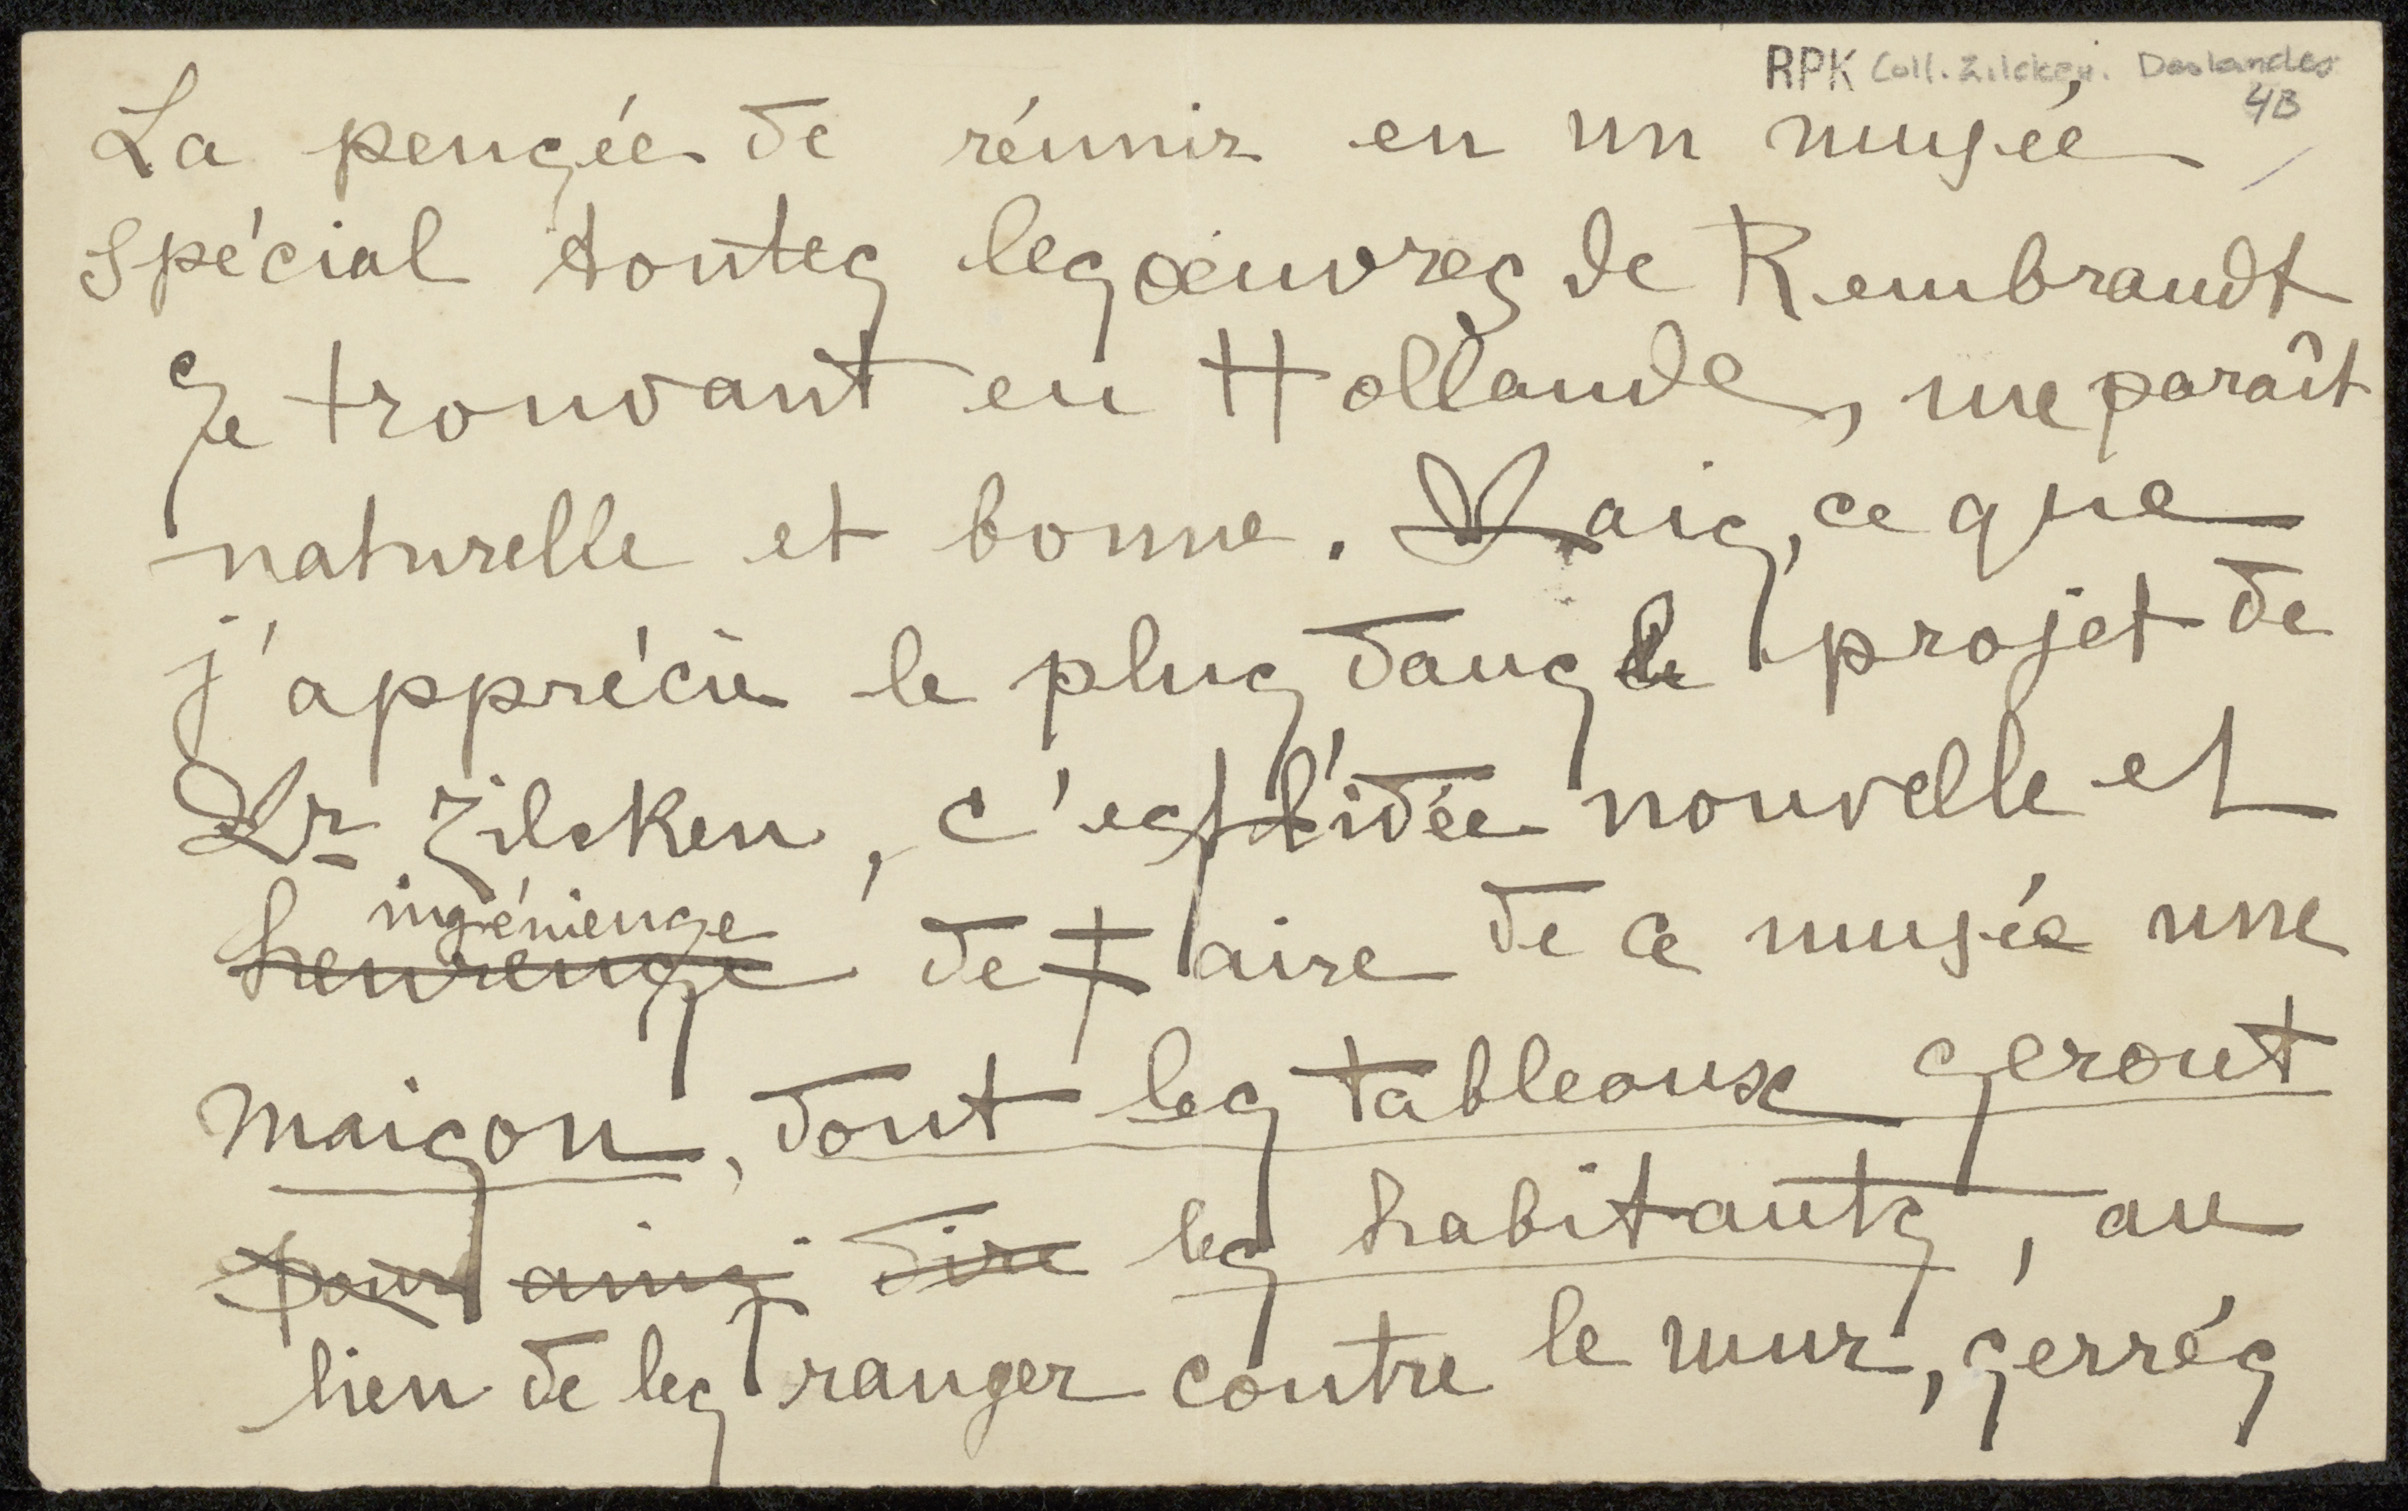 RPK Coll. Zilcken. Deslandes
4B
La pensée de réunir en un musée
spécial toutes les œuvres de Rembrandt
se trouvant en Hollande, me paraît
naturelle et bonne. Mais, ce que
j'apprécie le plus dans le projet de
Mr Zilcken, c'est l'idée nouvelle et
ingénieuse
heureuse de faire de ce musée une
maison, dont les tableaux seront
pour ainsi dire les habitants, au
lieu de les ranger contre le mur, serrés